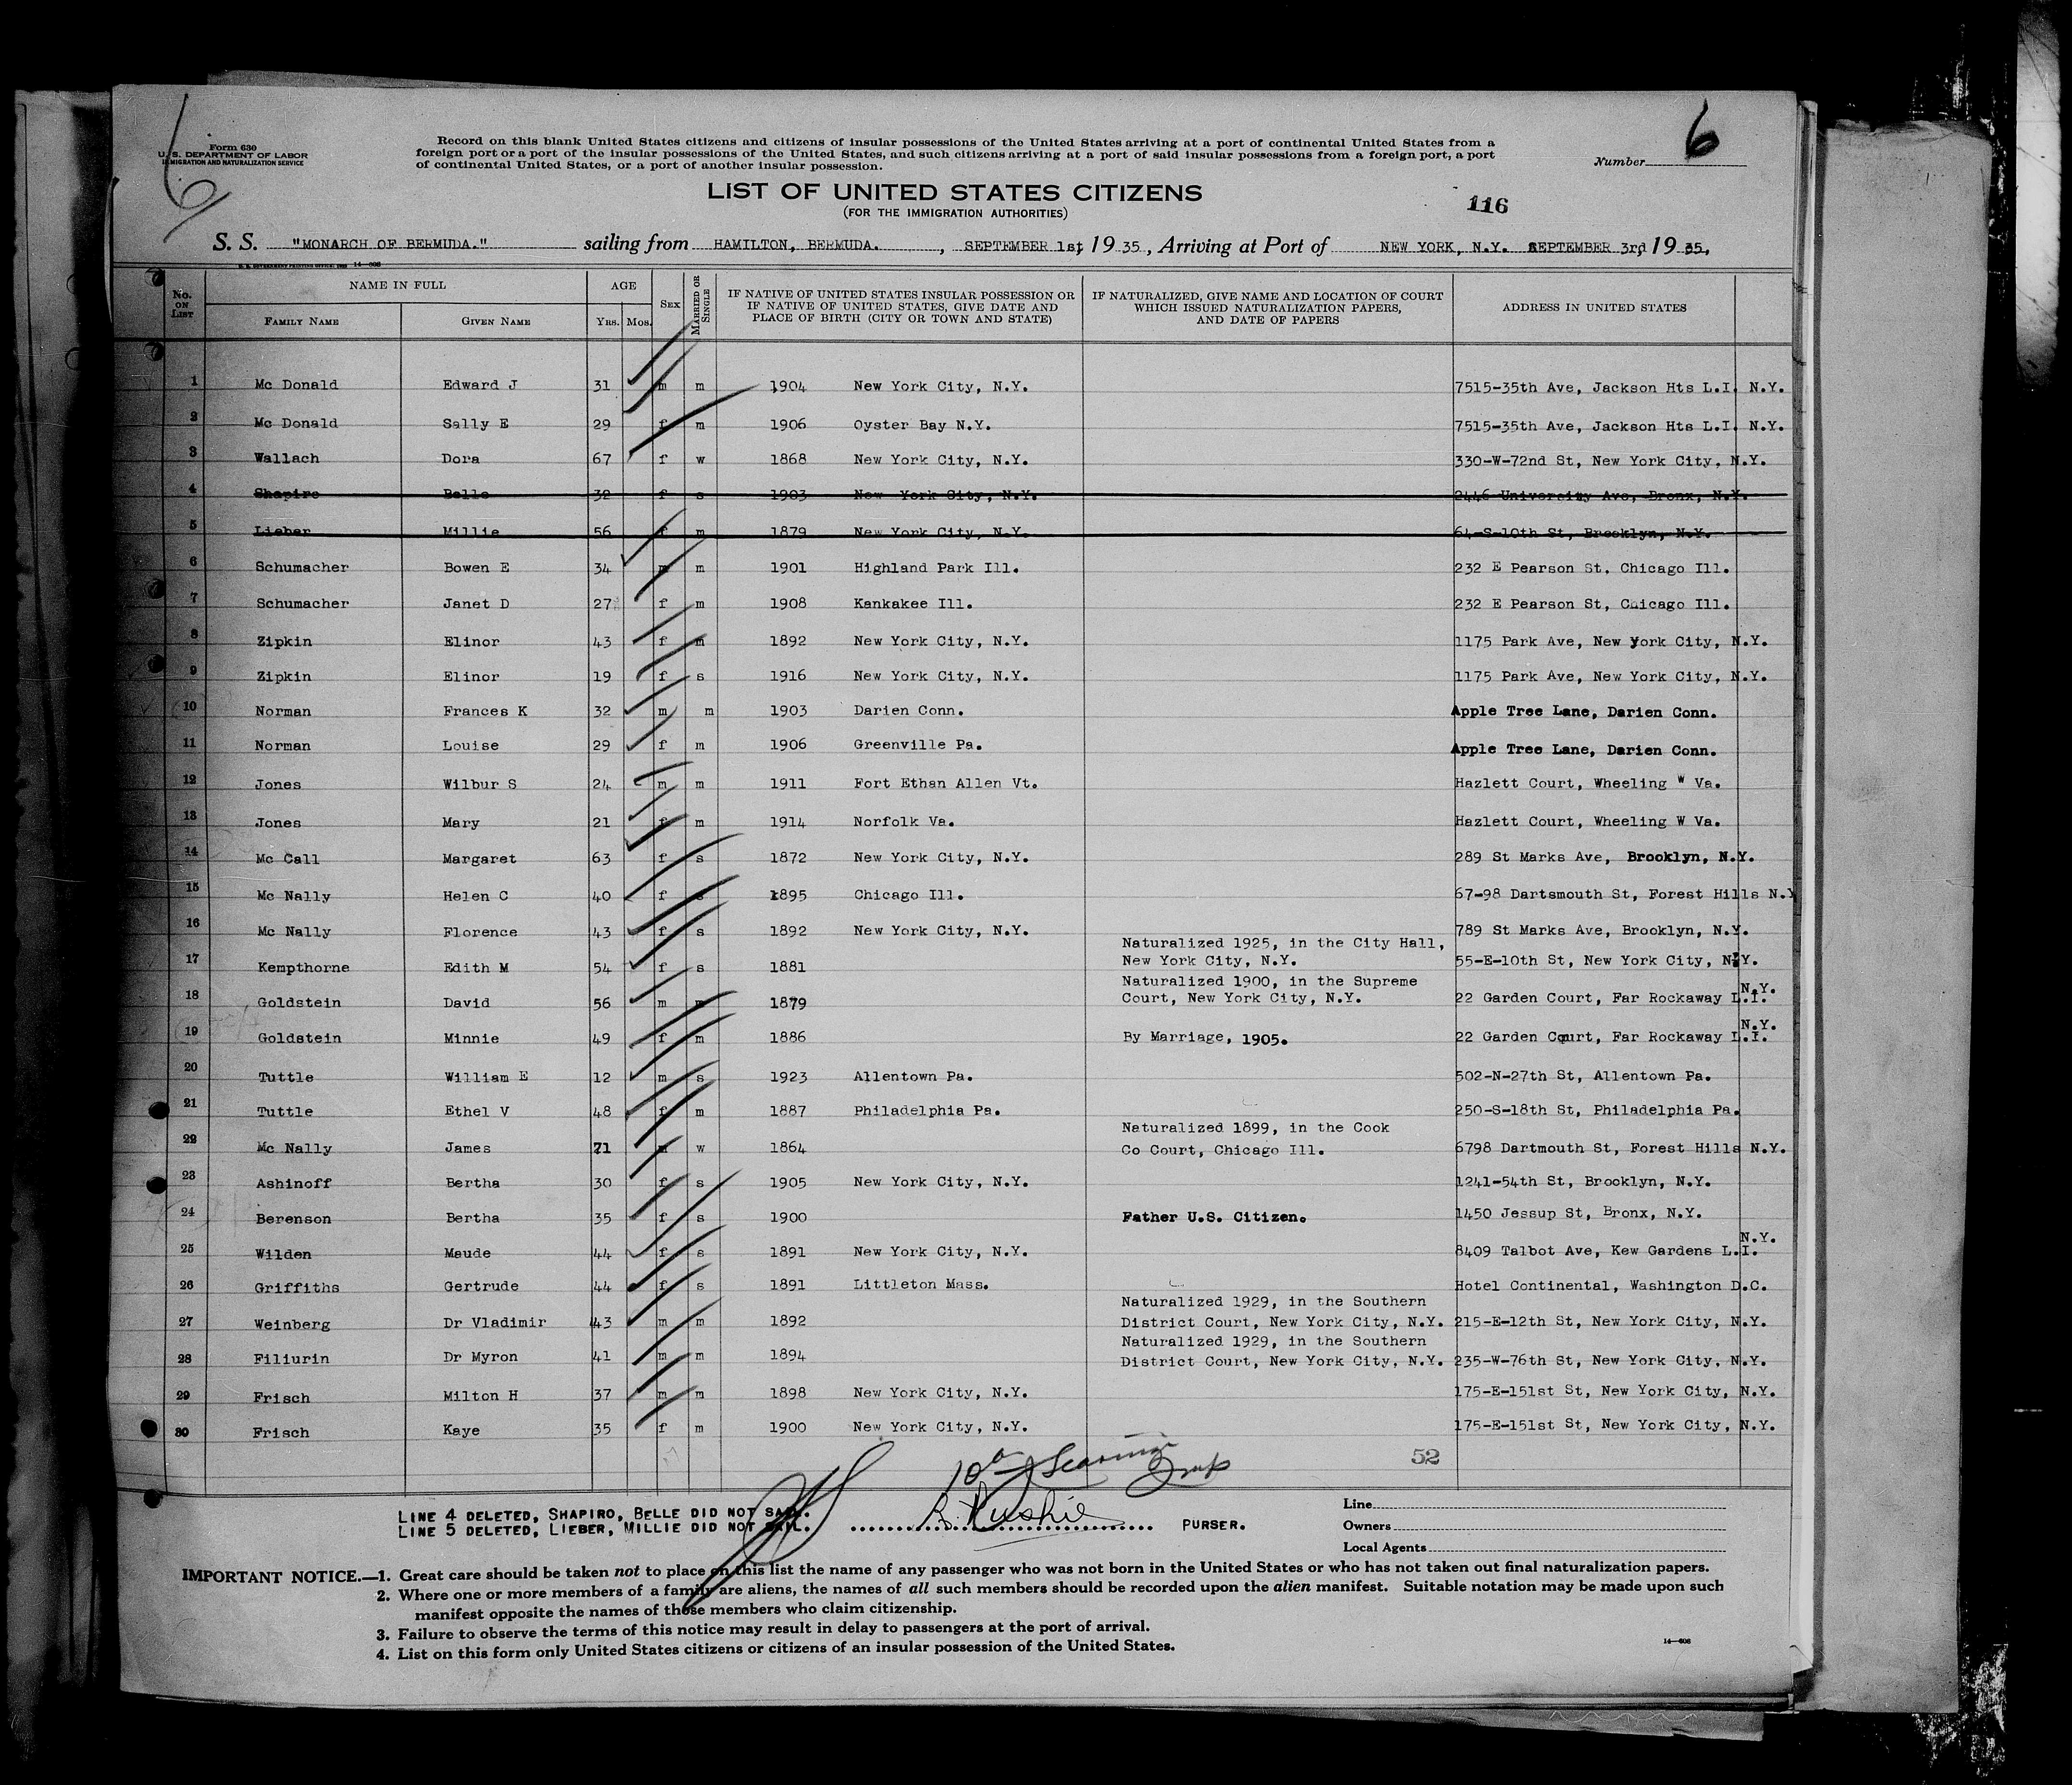 6
Form 630
U. S. DEPARTMENT OF LABOR
IMMIGRATION AND NATURALIZATION SERVICE
Record on this blank United States citizens and citizens of insular possessions of the United States arriving at a port of continental United States from a
foreign port or a port of the insular possessions of the United States, and such citizens arriving at a port of said insular possessions from a foreign port, a port
of continental United States, or a port of another insular possession.
Number 6
LIST OF UNITED STATES CITIZENS
(FOR THE IMMIGRATION AUTHORITIES)
116
S. S. "MONARCH OF BERMUDA." sailing from HAMILTON, BERMUDA. , SEPTEMBER 1st, 19 35, Arriving at Port of NEW YORK, N.Y. SEPTEMBER 3rd, 19 35,
U. S. GOVERNMENT PRINTING OFFICE: 14-608
No. ON LIST
NAME IN FULL
FAMILY NAME GIVEN NAME
AGE
YRS. MOS.
SEX
MARRIED OR SINGLE
IF NATIVE OF UNITED STATES INSULAR POSSESSION OR
IF NATIVE OF UNITED STATES, GIVE DATE AND
PLACE OF BIRTH (CITY OR TOWN AND STATE)
IF NATURALIZED, GIVE NAME AND LOCATION OF COURT
WHICH ISSUED NATURALIZATION PAPERS,
AND DATE OF PAPERS
ADDRESS IN UNITED STATES
1 Mc Donald Edward J 31 m m 1904 New York City, N.Y. 7515-35th Ave, Jackson Hts L.I. N.Y.
2 Mc Donald Sally E 29 f m 1906 Oyster Bay N.Y. 7515-35th Ave, Jackson Hts L.I. N.Y.
3 Wallach Dora 67 f w 1868 New York City, N.Y. 330-W-72nd St, New York City, N.Y.
4 Shapiro Belle 32 f s 1903 New York City, N.Y. 2446 University Ave, Bronx, N.Y.
5 Lieber Millie 56 f m 1879 New York City, N.Y. 64-S-10th St, Brooklyn, N.Y.
6 Schumacher Bowen E 34 m m 1901 Highland Park Ill. 232 E Pearson St, Chicago Ill.
7 Schumacher Janet D 27 f m 1908 Kankakee Ill. 232 E Pearson St, Chicago Ill.
8 Zipkin Elinor 43 f m 1892 New York City, N.Y. 1175 Park Ave, New York City, N.Y.
9 Zipkin Elinor 19 f s 1916 New York City, N.Y. 1175 Park Ave, New York City, N.Y.
10 Norman Frances K 32 m m 1903 Darien Conn. Apple Tree Lane, Darien Conn.
11 Norman Louise 29 f m 1906 Greenville Pa. Apple Tree Lane, Darien Conn.
12 Jones Wilbur S 24 m m 1911 Fort Ethan Allen Vt. Hazlett Court, Wheeling W Va.
13 Jones Mary 21 f m 1914 Norfolk Va. Hazlett Court, Wheeling W Va.
14 Mc Call Margaret 63 f s 1872 New York City, N.Y. 289 St Marks Ave, Brooklyn, N.Y.
15 Mc Nally Helen C 40 f s 1895 Chicago Ill. 67-98 Dartsmouth St, Forest Hills N.Y
16 Mc Nally Florence 43 f s 1892 New York City, N.Y. 789 St Marks Ave, Brooklyn, N.Y.
Naturalized 1925, in the City Hall,
17 Kempthorne Edith M 54 f s 1881 New York City, N.Y. 55-E-10th St, New York City, N.Y.
Naturalized 1900, in the Supreme N.Y.
18 Goldstein David 56 m m 1879 Court, New York City, N.Y. 22 Garden Court, Far Rockaway L.I.
N.Y.
19 Goldstein Minnie 49 f m 1886 By Marriage, 1905. 22 Garden Court, Far Rockaway L.I.
20 Tuttle William E 12 m s 1923 Allentown Pa. 502-N-27th St, Allentown Pa.
21 Tuttle Ethel V 48 f m 1887 Philadelphia Pa. 250-S-18th St, Philadelphia Pa.
Naturalized 1899, in the Cook
22 Mc Nally James 71 m w 1864 Co Court, Chicago Ill. 6798 Dartmouth St, Forest Hills N.Y.
23 Ashinoff Bertha 30 f s 1905 New York City, N.Y. 1241-54th St, Brooklyn, N.Y.
24 Berenson Bertha 35 f s 1900 Father U.S. Citizen. 1450 Jessup St, Bronx, N.Y.
N.Y.
25 Wilden Maude 44 f s 1891 New York City, N.Y. 8409 Talbot Ave, Kew Gardens L.I.
26 Griffiths Gertrude 44 f s 1891 Littleton Mass. Hotel Continental, Washington D.C.
Naturalized 1929, in the Southern
27 Weinberg Dr Vladimir 43 m m 1892 District Court, New York City, N.Y. 215-E-12th St, New York City, N.Y.
Naturalized 1929, in the Southern
28 Filiurin Dr Myron 41 m m 1894 District Court, New York City, N.Y. 235-W-76th St, New York City, N.Y.
29 Frisch Milton H 37 m m 1898 New York City, N.Y. 175-E-151st St, New York City, N.Y.
30 Frisch Kaye 35 f m 1900 New York City, N.Y. 175-E-151st St, New York City, N.Y.
52
LINE 4 DELETED, SHAPIRO, BELLE DID NOT SAIL.
LINE 5 DELETED, LIEBER, MILLIE DID NOT SAIL.
PURSER.
Line
Owners
Local Agents
IMPORTANT NOTICE.—1. Great care should be taken not to place on this list the name of any passenger who was not born in the United States or who has not taken out final naturalization papers.
2. Where one or more members of a family are aliens, the names of all such members should be recorded upon the alien manifest. Suitable notation may be made upon such
manifest opposite the names of those members who claim citizenship.
3. Failure to observe the terms of this notice may result in delay to passengers at the port of arrival.
4. List on this form only United States citizens or citizens of an insular possession of the United States.
14-608